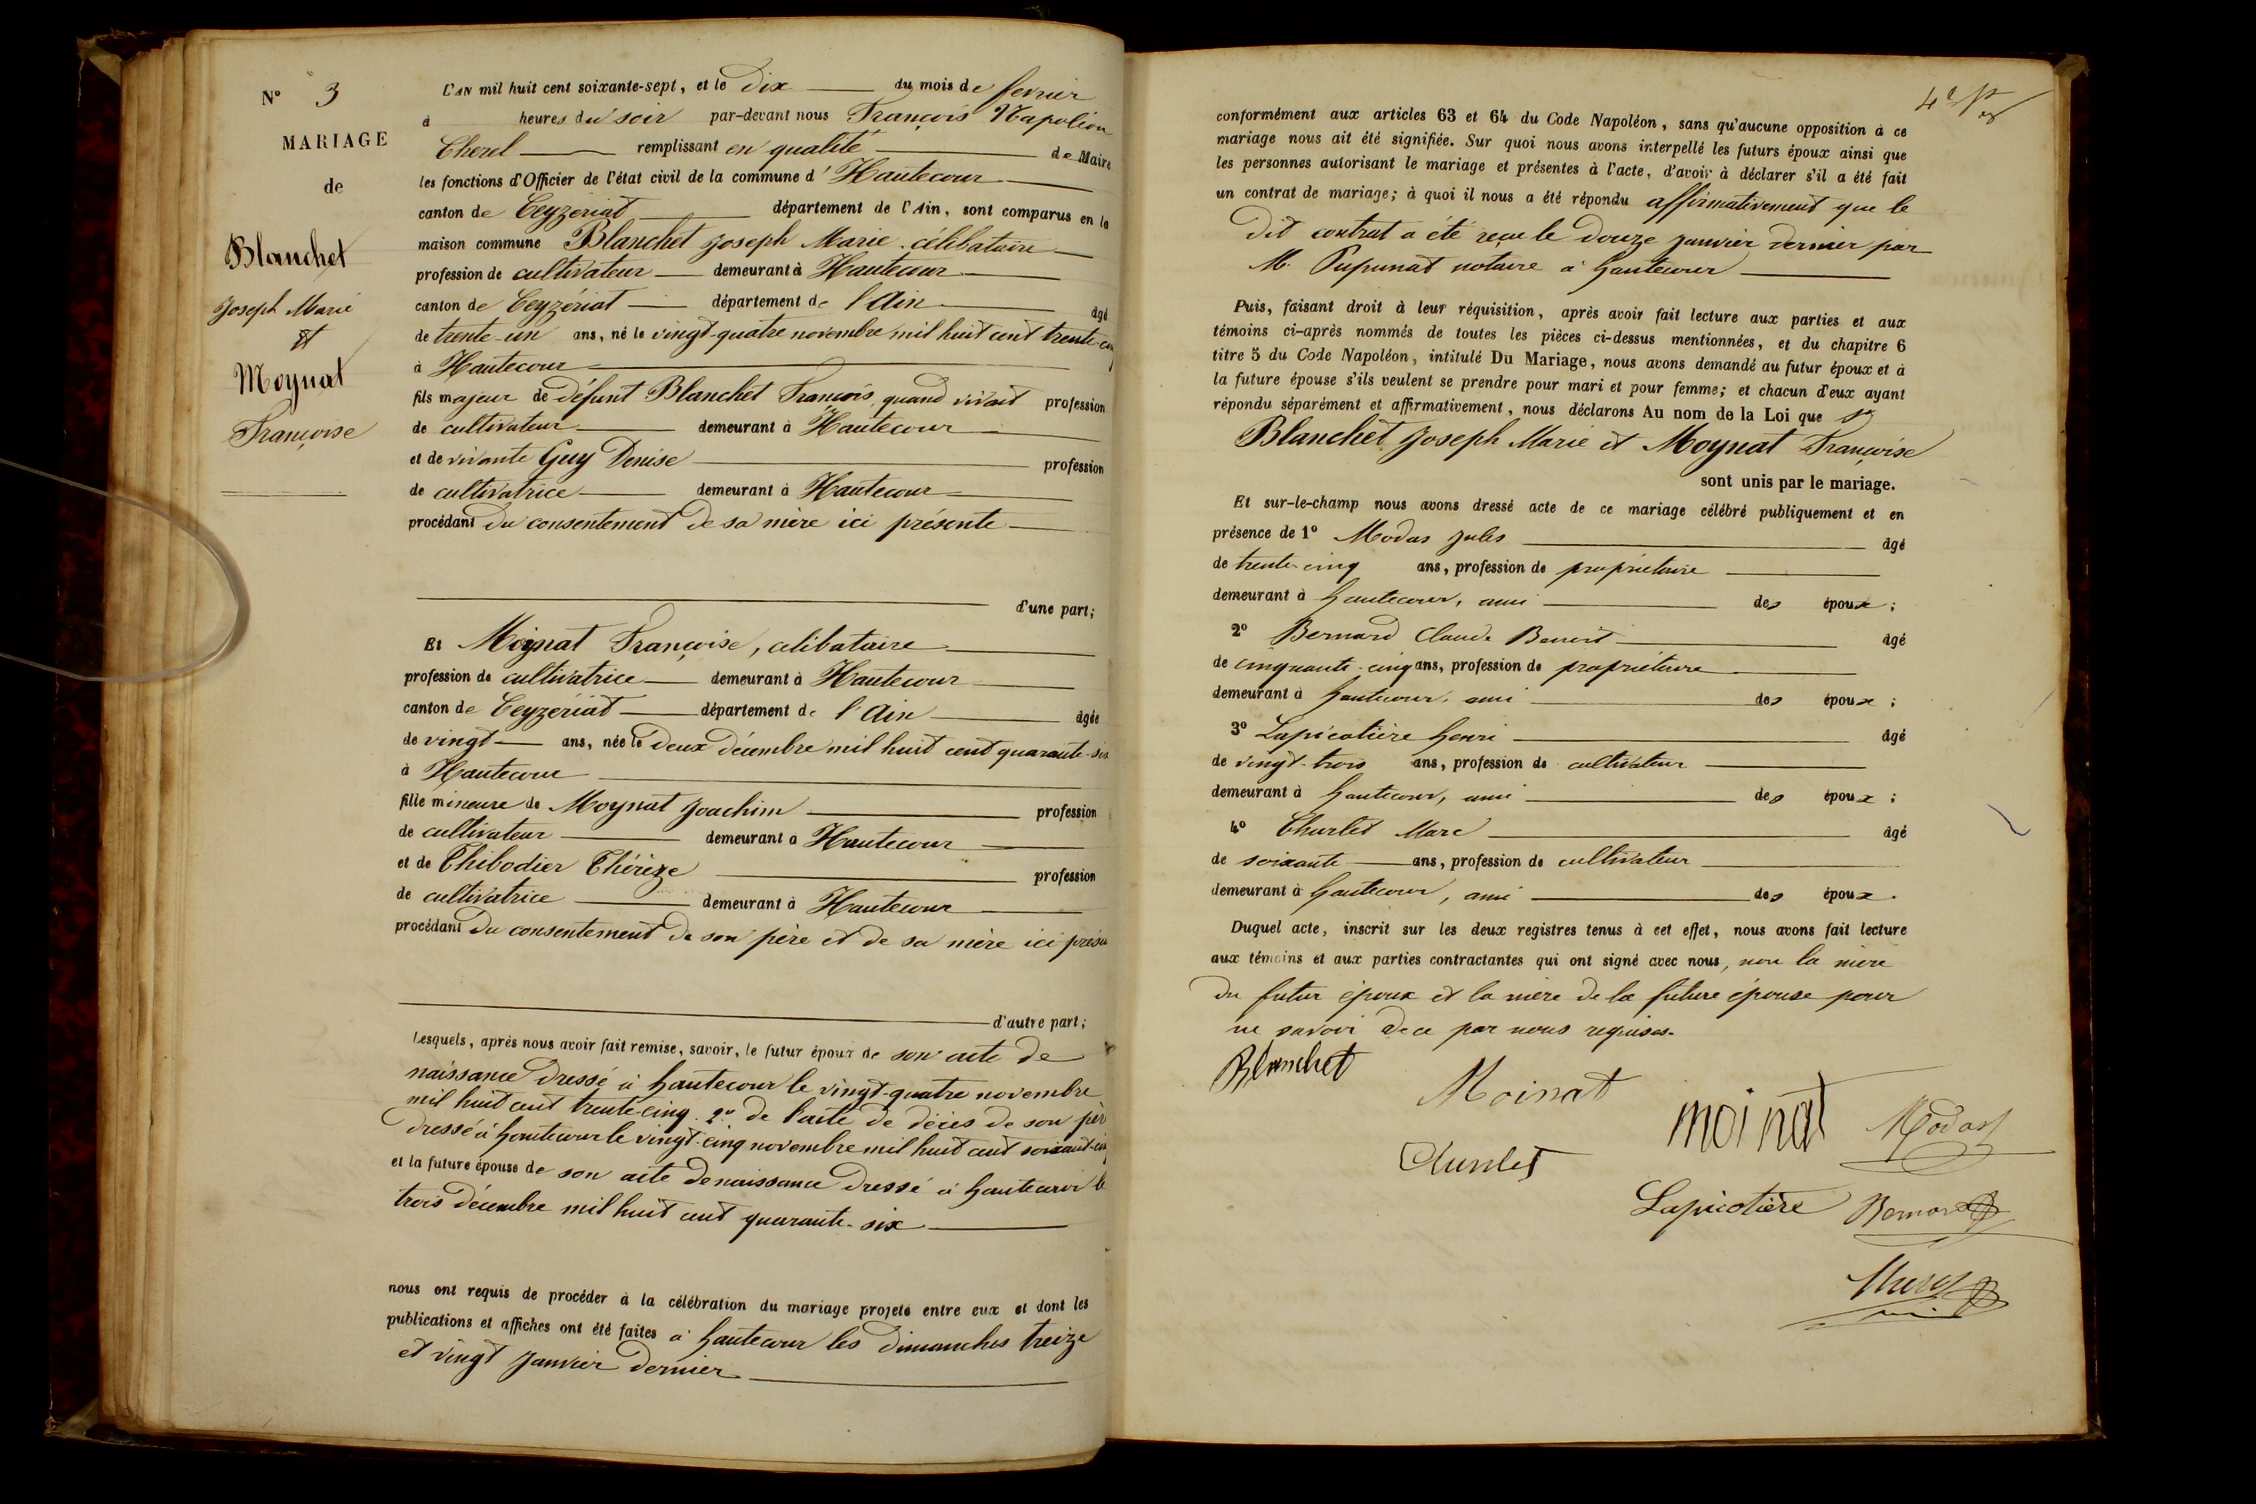 N° 3
MARIAGE
de
Blanchet
Joseph Marie
et
Moynat
Françoise
L'AN mil huit cent soixante-sept, et le Dix du mois de fevrier
à heures du soir par-devant nous François Napoléon
Cherel remplissant en qualité de Maire
les fonctions d'Officier de l'état civil de la commune d'Hautecour
canton de Ceyzeriat département de l'Ain, sont comparus en la
maison commune Blanchet Joseph Marie célibataire
profession de cultivateur demeurant à Hautecour
canton de Ceyzériat département de l'Ain âgé
de trente-un ans, né le vingt-quatre novembre mil huit cent trente-cinq
à Hautecour
fils majeur de défunt Blanchet François, quand vivait profession
de cultivateur demeurant à Hautecour
et de vivante Guy Denise profession
de cultivatrice demeurant à Hautecour
procédant du consentement de sa mère ici présente
d'une part;
Et Moynat Françoise, célibataire
profession de cultivatrice demeurant à Hautecour
canton de Ceyzériat département de l'Ain âgée
de vingt ans, née le deux décembre mil huit cent quarante-six
à Hautecour
fille mineure de Moynat Joachim profession
de cultivateur demeurant à Hautecour
et de Thibodier Thérèze profession
de cultivatrice demeurant à Hautecour
procédant du consentement de son père et de sa mère ici présen
d'autre part;
Lesquels, après nous avoir fait remise, savoir, le futur époux de son acte de
naissance dressé à hautecour le vingt-quatre novembre
mil huit cent trente-cinq. 2° de l'acte de décès de son père
dressé à hautecour le vingt-cinq novembre mil huit cent soixante-cinq
et la future épouse de son acte de naissance dressé à hautecour le
trois décembre mil huit cent quarante-six
nous ont requis de procéder à la célébration du mariage projeté entre eux et dont les
publications et affiches ont été faites à hautecour les dimanches treize
et vingt janvier dernier
conformément aux articles 63 et 64 du Code Napoléon, sans qu'aucune opposition à ce
mariage nous ait été signifiée. Sur quoi nous avons interpellé les futurs époux ainsi que
les personnes autorisant le mariage et présentes à l'acte, d'avoir à déclarer s'il a été fait
un contrat de mariage; à quoi il nous a été répondu affirmativement que le
dit contrat a été reçu le douze janvier dernier par
M. Pupunat notaire à hautecour
Puis, faisant droit à leur réquisition, après avoir fait lecture aux parties et aux
témoins ci-après nommés de toutes les pièces ci-dessus mentionnées, et du chapitre 6
titre 5 du Code Napoléon, intitulé Du Mariage, nous avons demandé au futur époux et à
la future épouse s'ils veulent se prendre pour mari et pour femme; et chacun d'eux ayant
répondu séparément et affirmativement, nous déclarons Au nom de la Loi que
Blanchet Joseph Marie et Moynat Françoise
sont unis par le mariage.
Et sur-le-champ nous avons dressé acte de ce mariage célébré publiquement et en
présence de 1° Modas Jules âgé
de trente-cinq ans, profession de propriétaire
demeurant à hautecour, ami des époux;
2° Bernard Claude Benoit âgé
de cinquante-cinq ans, profession de propriétaire
demeurant à hautecour, ami des époux;
3° Lapicotière henri âgé
de vingt-trois ans, profession de cultivateur
demeurant à hautecour, ami des époux;
4° Churlet Marc âgé
de soixante ans, profession de cultivateur
demeurant à hautecour, ami des époux.
Duquel acte, inscrit sur les deux registres tenus à cet effet, nous avons fait lecture
aux témoins et aux parties contractantes qui ont signé avec nous, non la mère
du futur époux et la mère de la future épouse pour
ne savoir de ce par nous requises.
Blanchet
Moinat
moinat
Modas
Churlet
Lapicotière
Bernard